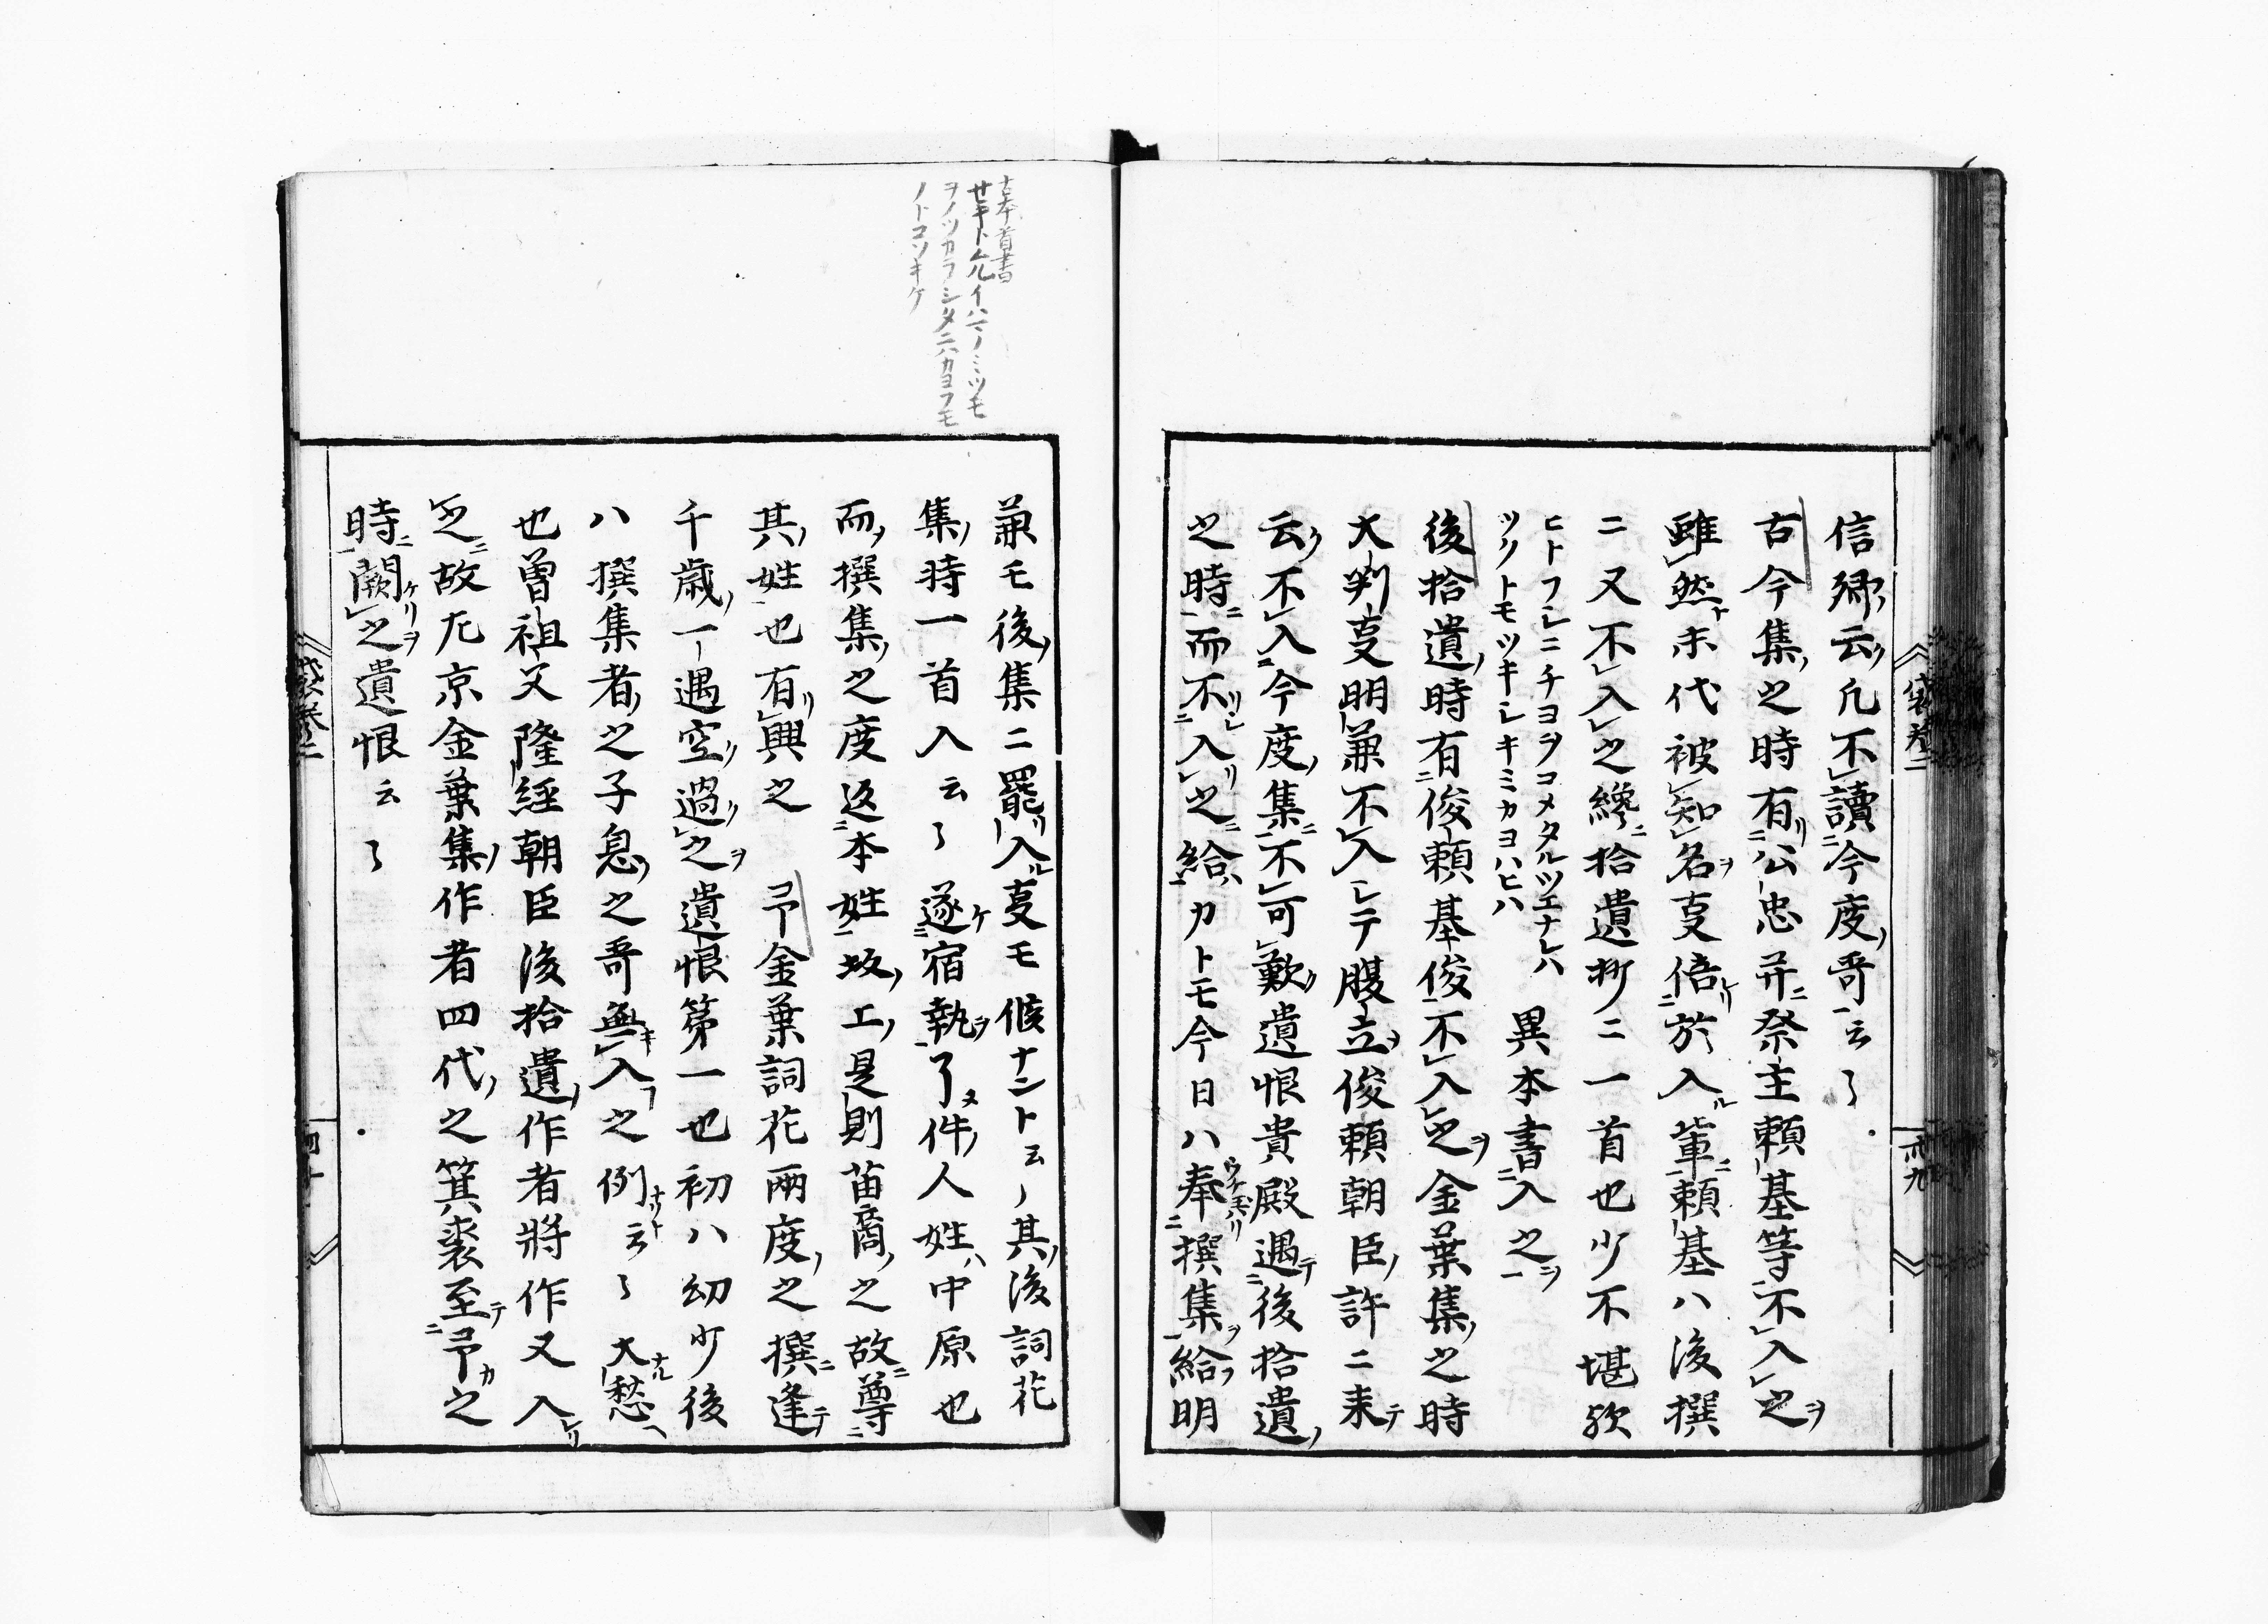 信卿云凡不讀今度哥云々
古今集之時有公忠并祭主頼基等不入之
雖然末代被知名事倍於入輩頼基ハ後撰
ニ又不入之纔拾遺抄ニ一首也少不堪欤
ヒトフシニチヨヲコメタルツエナレハ
ツクトモツキシキミカヨハヒハ
異本書入之
後拾遺時有俊頼基俊不入之金葉集之時
大判事明兼不入シテ腹立俊頼朝臣許ニ来テ
云不入今度集不可歎遺恨貴殿遇後拾遺
之時而不入之給カトモ今日ハ奉撰集給明
兼モ後集ニ罷入事モ候ナント云ノ其後詞花
集時一首入云々遂宿執了件人姓中原也
而撰集之度返本姓坂上是則苗裔之故尊
其姓也有興之 予金葉詞花兩度之撰逢
千歳一遇空過之遺恨第一也初ハ幼少後
ハ撰集者之子息之哥無入之例云々大愁
也曽祖父隆経朝臣後拾遺作者將作又入
之故左京金葉集作者四代之箕裘至予之
時闕之遺恨云々
袋巻二
卅九
袋巻二
四十